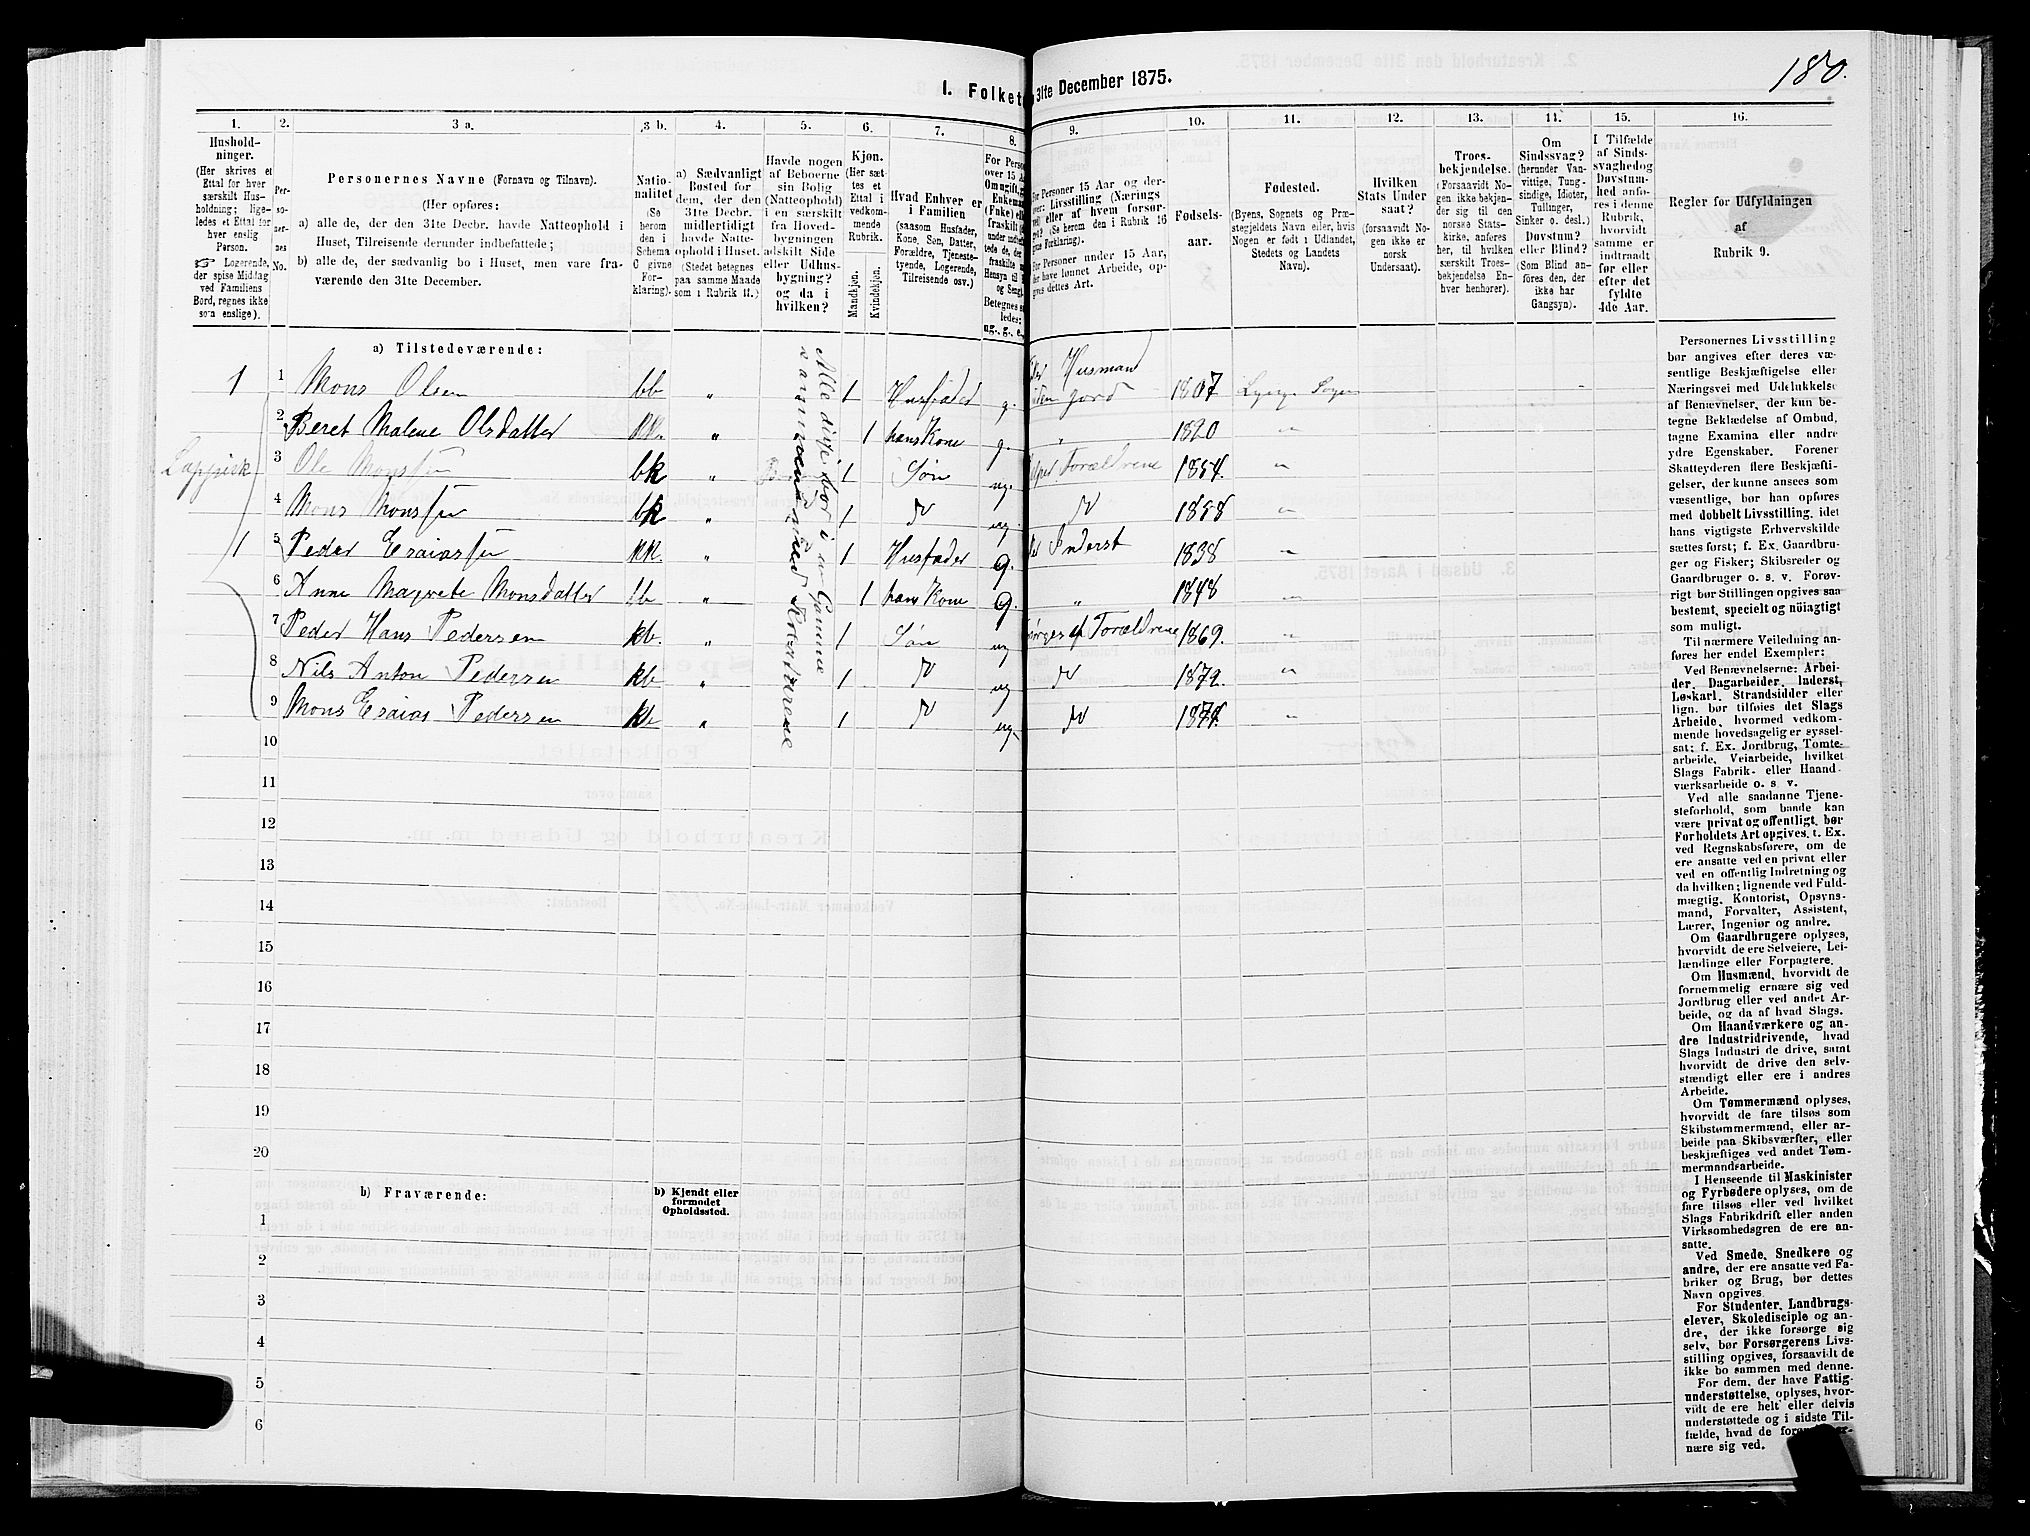 180.
I. Folket
31te December 1875.
1.
2.
3 a.
3 b.
4.
5.
6.
7.
8.
9.
10.
11.
12.
13.
14.
15.
16.
Hushold-
ninger.
(Her skrives et
Ettal for hver
særskilt Hus-
holdning; lige-
ledes et Ettal for
hver enslig
Person.
☞ Logerende,
der spise Middag
ved Familiens
Bord, regnes ikke
som enslige).
Per-
so-
ner-
nes
No.
Personernes Navne (Fornavn og Tilnavn).
(Her opføres:
a) alle de, der den 31te Decbr. havde Natteophold i
Huset, Tilreisende derunder indbefattede;
b) alle de, der sædvanlig bo i Huset, men vare fra-
værende den 31te December.
Natio-
nalitet
(Se
herom
den i
Schema
C givne
For-
klaring).
a) Sædvanligt
Bosted for
dem, der den
31te Decbr.
midlertidigt
havde Natte-
ophold i Huset.
(Stedet betegnes
paa samme Maade
som i Rubrik 11.)
Havde nogen
af Beboerne
sin Bolig
(Natteophold)
i en særskilt
fra Hoved-
bygningen
adskilt Side
eller Udhus-
bygning?
og da i
hvilken?
Kjøn.
(Her sæt-
tes et
Ettal i
vedkom-
mende
Rubrik.
Mandkjøn.
Kvindekjøn.
Hvad Enhver er
i Familien
(saasom Husfader,
Kone, Søn, Datter,
Forældre, Tjeneste-
tyende, Logerende,
Tilreisende osv.)
For Perso
over 15 Aar
Om ugift,
Enkema
(Enke) el
fraskilt
tede de, der
fraskilte
Hensyn til
og Seng.
Betegnes s
ledes:
ug., g., e.
For Personer 15 Aar og der-
over: Livsstilling (Nærings
vei) eller af hvem forsør-
get? (Se herom den i Rubrik 16
givne Forklaring).
For Personer under 15 Aar,
der have lønnet Arbeide, op-
gives dettes Art.
Fødsels-
aar.
Fødested.
(Byens, Sognets og Præ-
stegjeldets Navn eller, hvis
Nogen er født i Udlandet,
Stedets og Landets
Navn).
Hvilken
Stats Under
saat?
(forsaavidt No-
gen ikke er
norsk
Undersaat).
Troes-
bekjendelse.
(Forsaavidt No-
gen ikke bekjen-
der sig til den
norske Stats-
kirke, anføres
her, til hvilken
særskilt Troes-
bekjendelse En-
hver henhører).
Om
Sindssvag?
(herunder Van-
vittige, Tung-
sindige, Idioter,
Tullinger,
Sinker o. desl.)
Døvstum?
eller Blind?
(Som Blind an-
føres den, der
ikke har
Gangsyn).
I Tilfælde
af Sinds-
svaghed og
Døvstum-
hed anfø-
res i denne
Rubrik,
hvorvidt
samme er
indtraadt
før eller
efter det
fyldte
4de Aar.
Regler for Udfyldningen
af
Rubrik 9.
a) Tilstedeværende:
Alle disse bor i en Gamme
sammen med Kreaturene
1 1 Mons Olsen bb „ 1 Husfader g. Husmand
uden Jord 1807 Lyngs Sogn
2 Beret Malene Olsdatter kk. „ 1 hans Kone g. „ 1820 „
Lappisk 3 Ole Monssen bk „ 1 Søn ug. Forældrene 1854. „
4 Mons Monssen bk „ 1 d° ug. d° 1858 „
1 5 Peder Esaiassen kk. „ 1 Husfader g. Inderst 1838 „
6 Anne Magrete Monsdatter bb „ 1 hans Kone g. „ 1848 „
7 Peder Hans Pedersen kb. „ 1 Søn ug Forældrene 1869. „
8 Nils Anton Pedersen kb „ 1 d° ug d° 1872. „
9 Mons Esaias Pedersen kb „ 1 d° ug. d° „
10
11
12
13
14
15
16
17
18
19
20
b) Fraværende:
b) Kjendt eller
formodet
Opholdssted.
1
2
3
4
5
6
Personernes Livsstilling
bør angives efter deres væ-
sentlige Beskjæftigelse eller
Næringsvei med Udelukkelse
af Benævnelser, der kun be-
tegne Beklædelse af Ombud,
tagne Examina eller andre
ydre Egenskaber. Forener
Skatteyderen flere Beskjæfti-
gelser, der kunne ansees som
væsentlige, bør han opføres
med dobbelt Livsstilling, idet
hans vigtigste Erhvervskilde
sættes først; f. Ex. Gaardbru-
ger og Fisker; Skibsreder og
Gaardbruger o. s. v. Forøv-
rigt bør Stillingen opgives saa
bestemt, specielt og nöiagtigt
som muligt.
Til nærmere Veiledning an-
føres her endel Exempler:
Ved Benævnelserne: Arbei-
der, Dagarbeider, Inderst,
Løskarl, Strandsidder eller
lign. bør tilføies det Slags
Arbeide, hvormed vedkom-
mende hovedsagelig er syssel-
sat; f. Ex. Jordbrug, Tomte-
arbeide, Veiarbeide, hvilket
Slags Fabrik- eller Haand-
værksarbeide o. s. v.
Ved alle saadanne Tjene-
steforhold, som baade kan
være privat og offentligt, bør
Forholdets Art opgives, t. Ex.
ved Regnskabsførere, om de
ere ansatte ved en privat eller
ved en offentlig Indretning og
da hvilken; lignende ved Fuld-
mægtig, Kontorist, Opsyns-
mand, Forvalter, Assistent,
Lærer, Ingeniør og andre.
Om Gaardbrugere oplyses,
hvorvidt de ere Selveiere, Lei-
lændinge eller Forpagtere.
Om Husmænd, hvorvidt de
fornemmelig ernære sig ved
Jordbrug eller ved andet Ar-
beide, og da af hvad Slags.
Om Haandværkere og an-
dre Industridrivende, hvad
Slags Industri de drive, samt
hvorvidt de drive den selv-
stændigt eller ere i andres
Arbeide.
Om Tømmermænd oplyses,
hvorvidt de fare tilsøs som
Skibstømmermænd, eller ar-
beide paa Skibsværfter, eller
beskjæftiges ved andet Tøm-
mermandsarbeide.
I Henseende til Maskinister
og Fyrbødere oplyses, om de
fare tilsøs eller ved hvilket
Slags Fabrikdrift eller anden
Virksomhedsgren de ere an-
satte.
Ved Smede, Snedkere og
andre, der ere ansatte ved Fa-
briker og Brug, bør dettes
Navn opgives.
For Studenter, Landbrugs-
elever, Skoledisciple og an-
dre, der ikke forsørge sig
selv, bør Forsørgerens Livs-
stilling opgives, forsaavidt de
ikke bo sammen med denne.
For dem, der have Fattig-
understøttelse, oplyses, hvor-
vidt de ere helt eller delvis
understøttede og i sidste Til-
fælde, hvad de forøvrigt er-
nære sig ved.